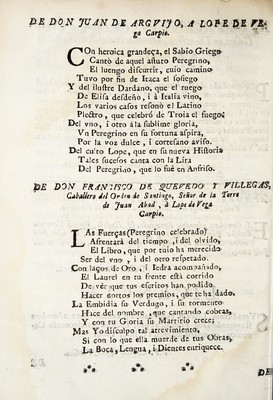 DE DON JUAN DE ARGVIJO, A LOPE DE VE-
ga Carpio.
CON heroica grandeça, el Sabio Griego
Cantò de aquel astuto Peregrino,
El luengo discurrir, cuio camino
Tuvo por fin de Itaca el sosiego
Y del ilustre Dardano, que el ruego
De Elisa desdeño, i a Italia vino,
Los varios casos resonò el Latino
Plectro, que celebrò de Troia el fuego:
Del vno, i otro à la sublime gloria,
Vn Peregrino en su fortuna aspira,
Por la voz dulce, i cortesano aviso.
Del culto Lope, que en su nueva Historia
Tales sucesos canta con la Lira
Del Peregrino, que lo fuè en Anfriso.
DE DON FRANCISCO DE QUEVEDO Y VILLEGAS,
Caballero del Orden de Santiago, Señor de la Torre
de Juan Abad, à Lope de Vega
Carpio.
LAS Fuerças (Peregrino celebrado)
Afrentarà del tiempo, i del olvido,
El Libro, que por tuio ha merecido
Ser del vno, i del otro respetado.
Con laços de Oro, i Iedra acompañado,
El Laurel en tu frente està corrido
De vèr que tus escritos han podido
Hacer cortos los premios, que te ha dado.
La Embidia su Verdugo, i su tormento
Hace del nombre, que cantando cobras,
Y con tu Gloria su Martirio crece;
Mas Yo disculpo tal atrevimiento,
Si con lo que ella muerde de tus Obras,
La Boca, Lengua, i Dientes enriquece.
DE